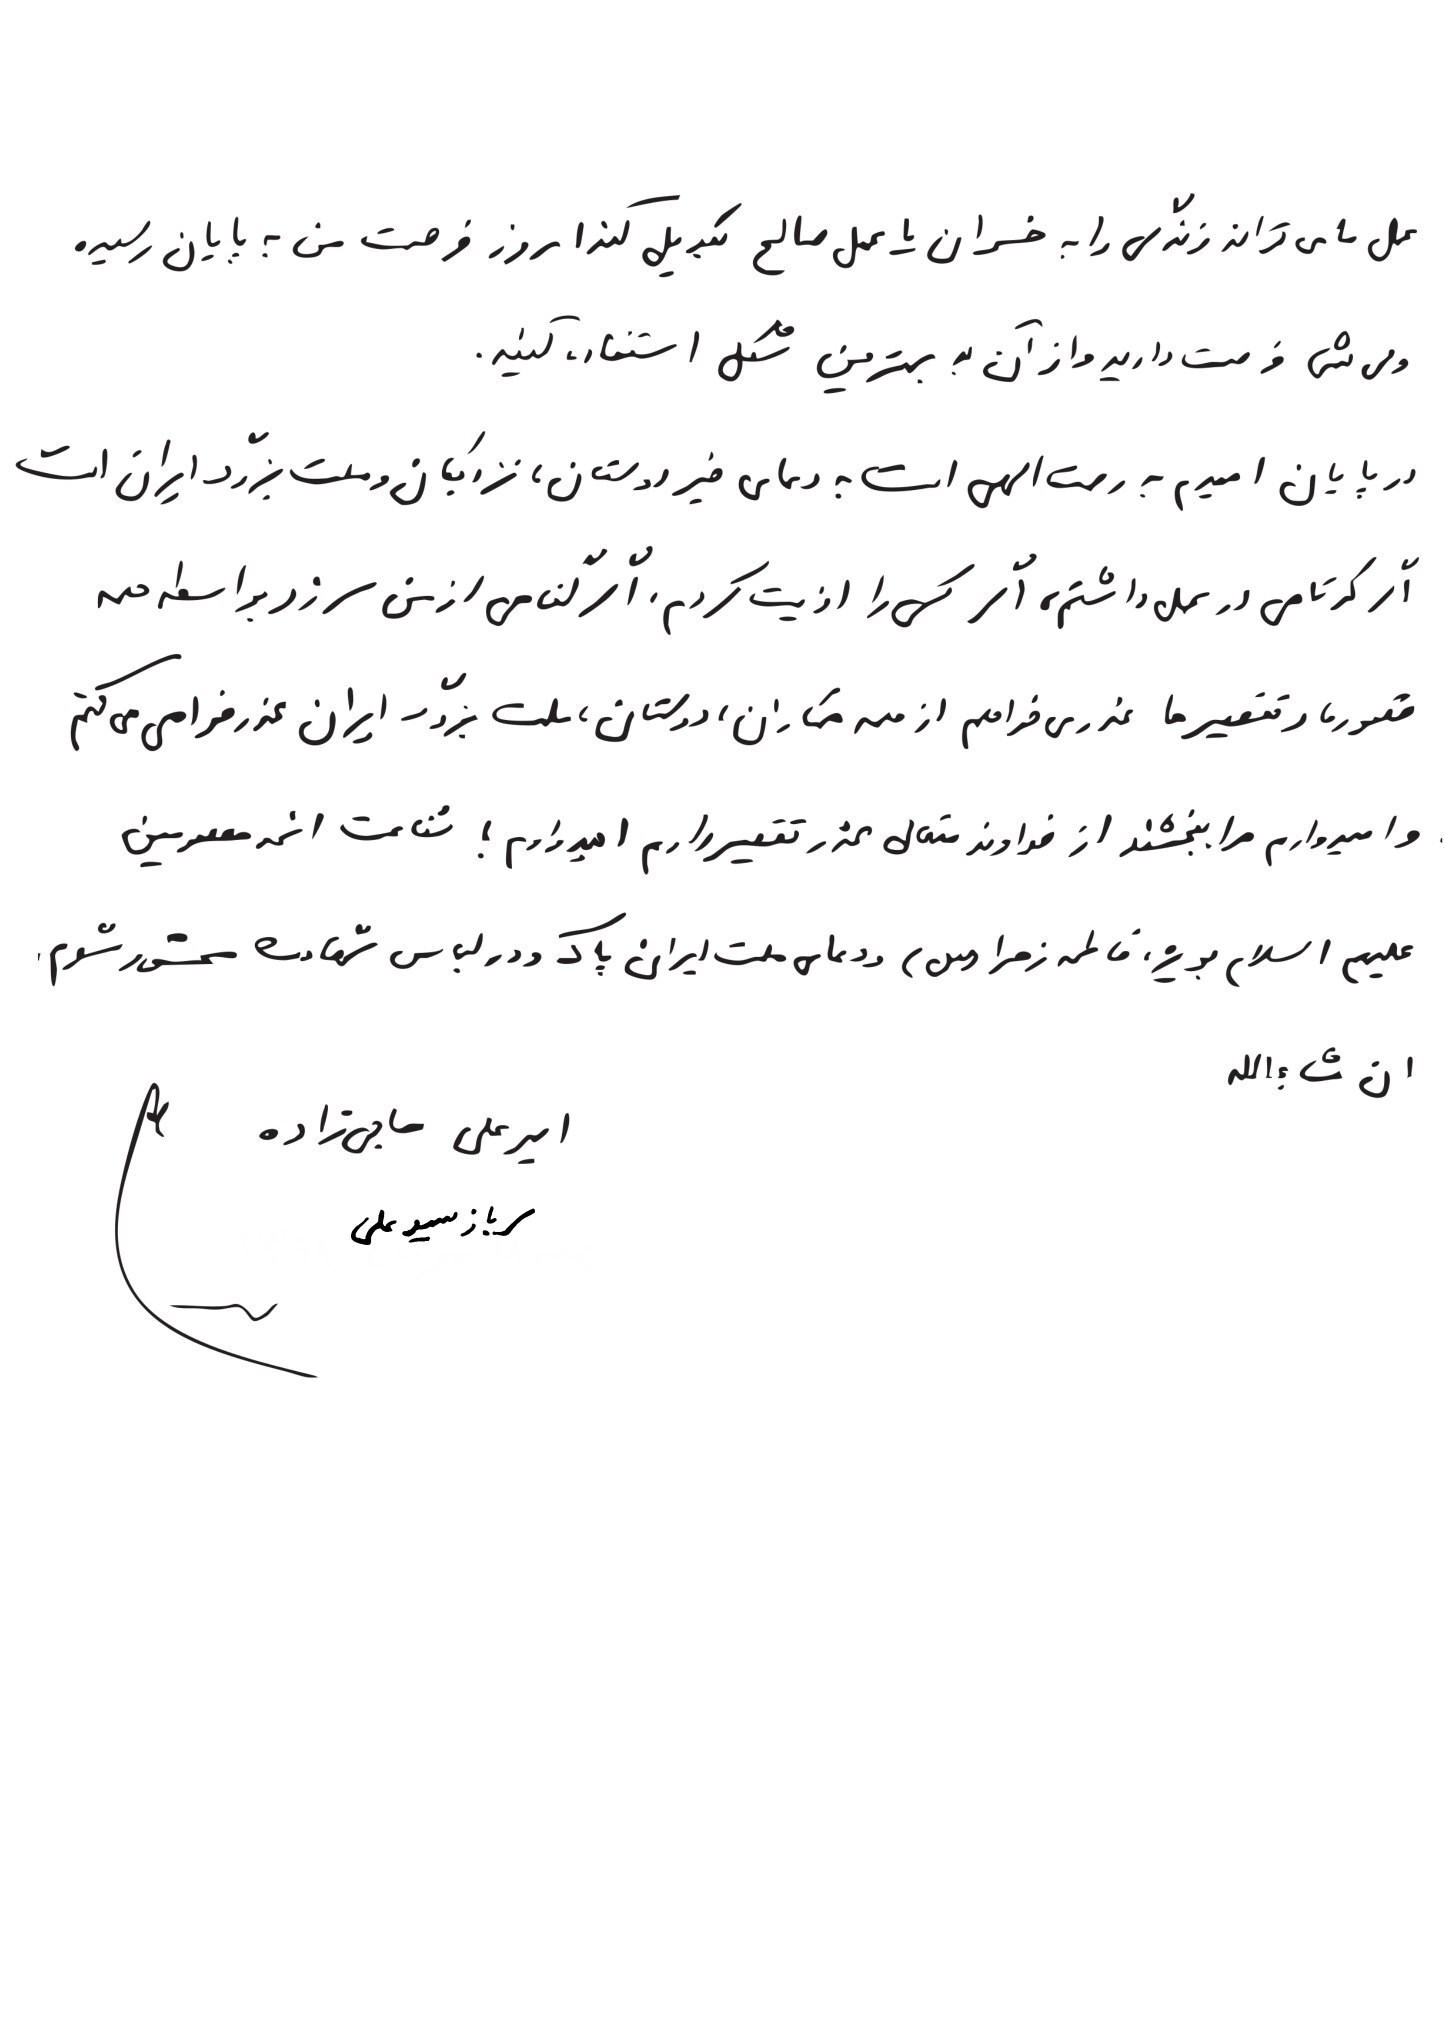 عمل ما می تواند زندگی را به خسران یا عمل صالح تبدیل کند امروز فرصت من به پایان رسیده
ولی شما فرصت دارید و از آن به بهترین شکل استفاده کنید.
در پایان امیدم به رحمت الهی است به دعای خیر دوستان، نزدیکان و ملت بزرگ ایران است
اگر کوتاهی در عمل داشتم، اگر کسی را اذیت کردم، اگر گناهی از من سر زد بواسطه همه
قصورها و تقصیرها عذر می‌خواهم از همه همکاران، دوستان، ملت بزرگ ایران عذرخواهی می‌کنم
و امیدوارم مرا ببخشند از خداوند متعال عذر تقصیر دارم امیدوارم با شفاعت ائمه معصومین
علیهم السلام بویژه، فاطمه زهرا (س) و دعای ملت ایران پاک و در لباس شهادت محشور شوم.
ان شاءالله
امیرعلی حاجی‌زاده
سرباز سید علی